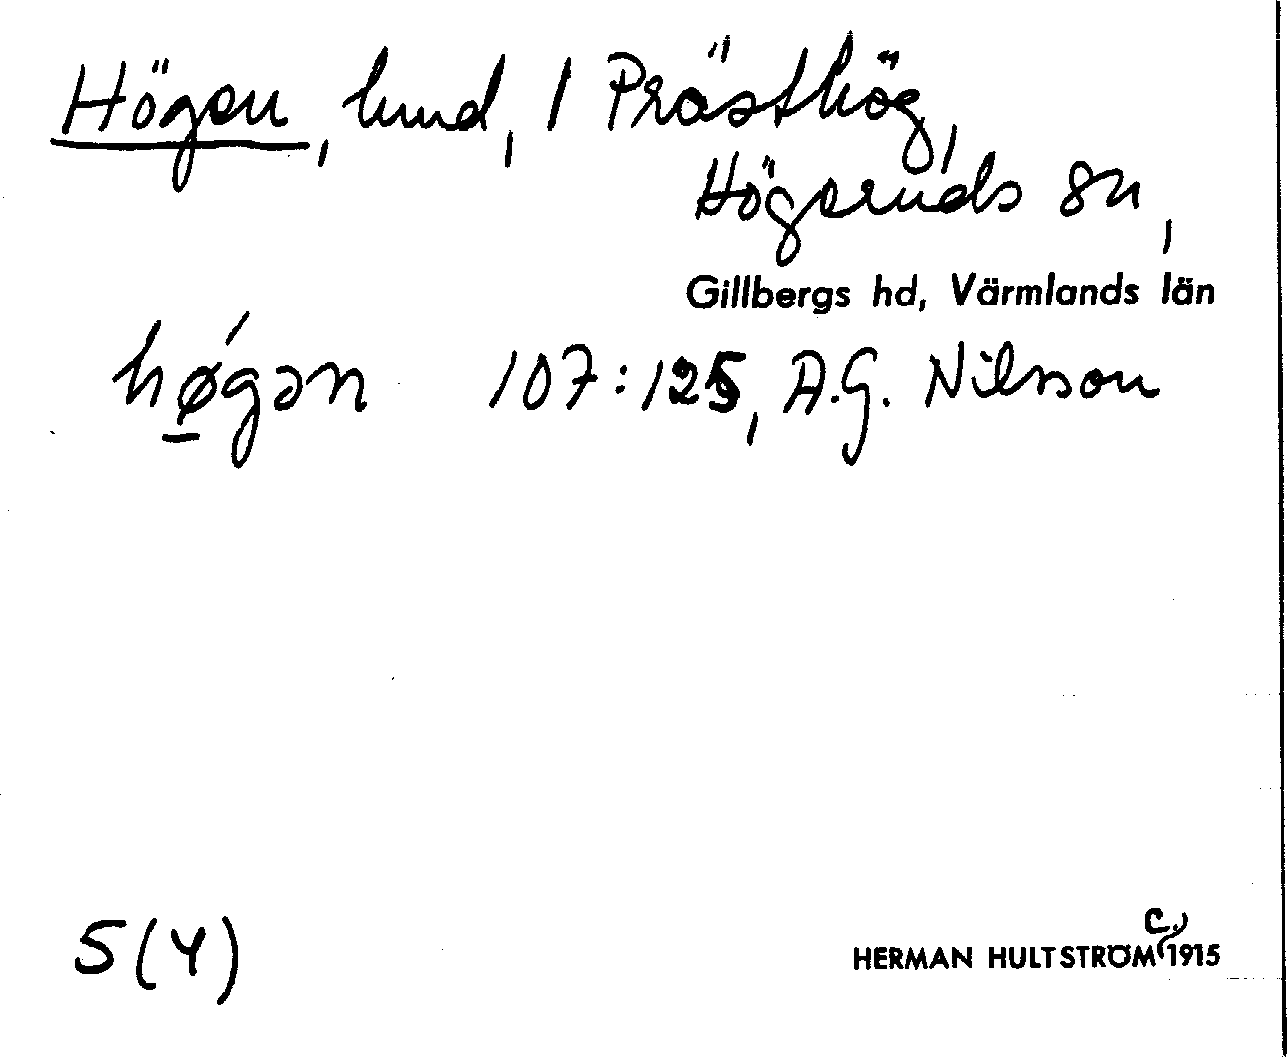 Högen, lund, 1 Prästhög,
Högeruds sn,
Gillbergs hd, Värmlands län
hǿ̱gən 107:125, A.G. Nilsson
5(Y)
HERMAN HULTSTRÖM c. 1915